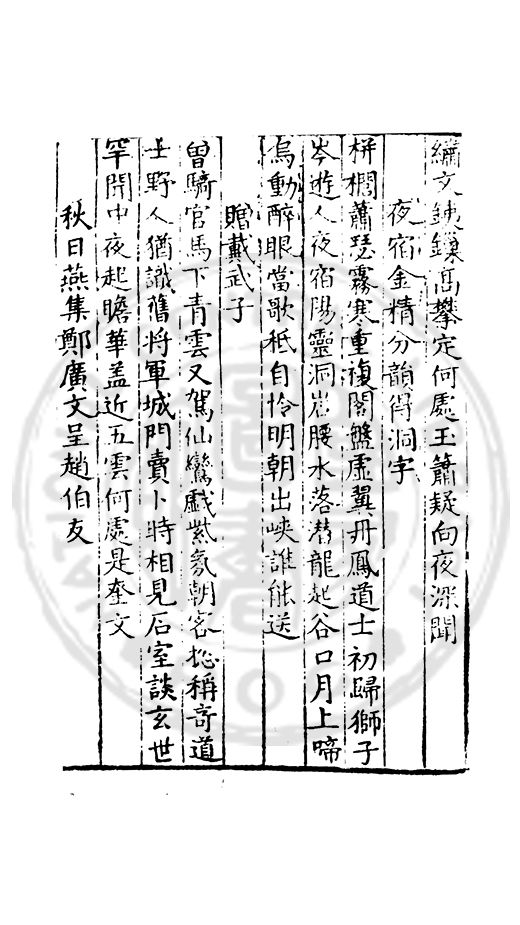 繡文鈇鑕高攀定何處玉簫疑向夜深聞
夜宿金精分韻得洞字
栟櫚蕭瑟霧寒重複閣盤虛翼丹鳳道士初歸獅子
岑遊人夜宿陽靈洞岩腰水落潜龍起谷口月上啼
烏動醉眼當歌秪自怜明朝出峽誰能送
贈戴武子
曽騎官馬下青雲又駕仙鸞戯紫氛朝客捴稱奇道
士野人猶識舊將軍城門賣卜時相見石室談玄世
罕聞中夜起瞻華盖近五雲何處是奎文
秋日燕集鄭廣文呈趙伯友